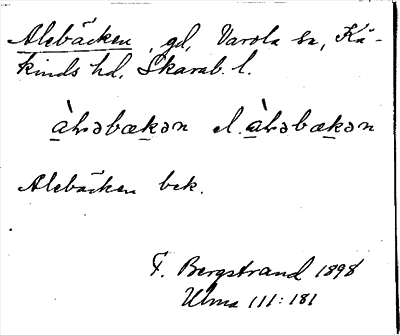 Alebäcken, gd, Varola sn, Kå-
kinds hd, Skarab. l.
àləbækən el. àləbækən
Alebäcken bek.
F. Bergstrand 1898
Ulma 111:181